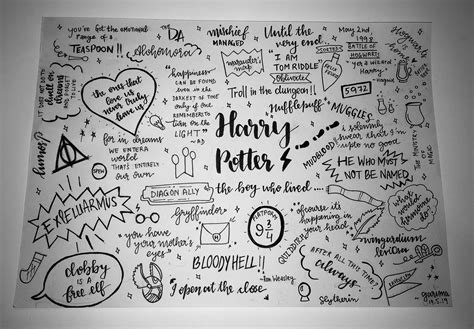 you've got the emotional
range of a
TEASPOON!!
The
DA
Alohomora
mischief
MANAGED
marauder's
map
Until the
very end
"I AM
TOM RIDDLE"
Obliviate!
Troll in the dungeon!!
May 2nd,
1998
BATTLE OF
HOGWARTS
yer a wizard
Harry
5972
August
Hogwarts
IT DOES NOT DO
dwell on
dreams
AND FORGET
TO LIVE
the ones that
love us
never truly
leave us
"happiness
CAN BE FOUND
even in the
DARKEST OF TIMES
only if one
REMEMBERS TO
turn on the
LIGHT"
Hufflepuff
MUGGLES
Harry
Potter
the boy who lived....
MUDBLOOD
I solemnly
swear that i'm
upto no good
MINISTRY
OF
MAGIC
HE WHO MUST
NOT BE NAMED
Slytherin
EXPELLIARMUS
for in dreams
WE ENTER A
world
THAT'S ENTIRELY
our own
SPEW
DIAGON ALLY
Gryffindor
"you have
your mother's
eyes"
PLATFORM
9 3/4
of course its
happening in
your head
QUIDDITCH
what
would
hermione
do
wingardium
leviosa
AFTER ALL THIS TIME?
always
dobby
is a
FREE elf
BLOODY HELL!!
- Ron Weasley
"I open at the close
garima
19.5.19